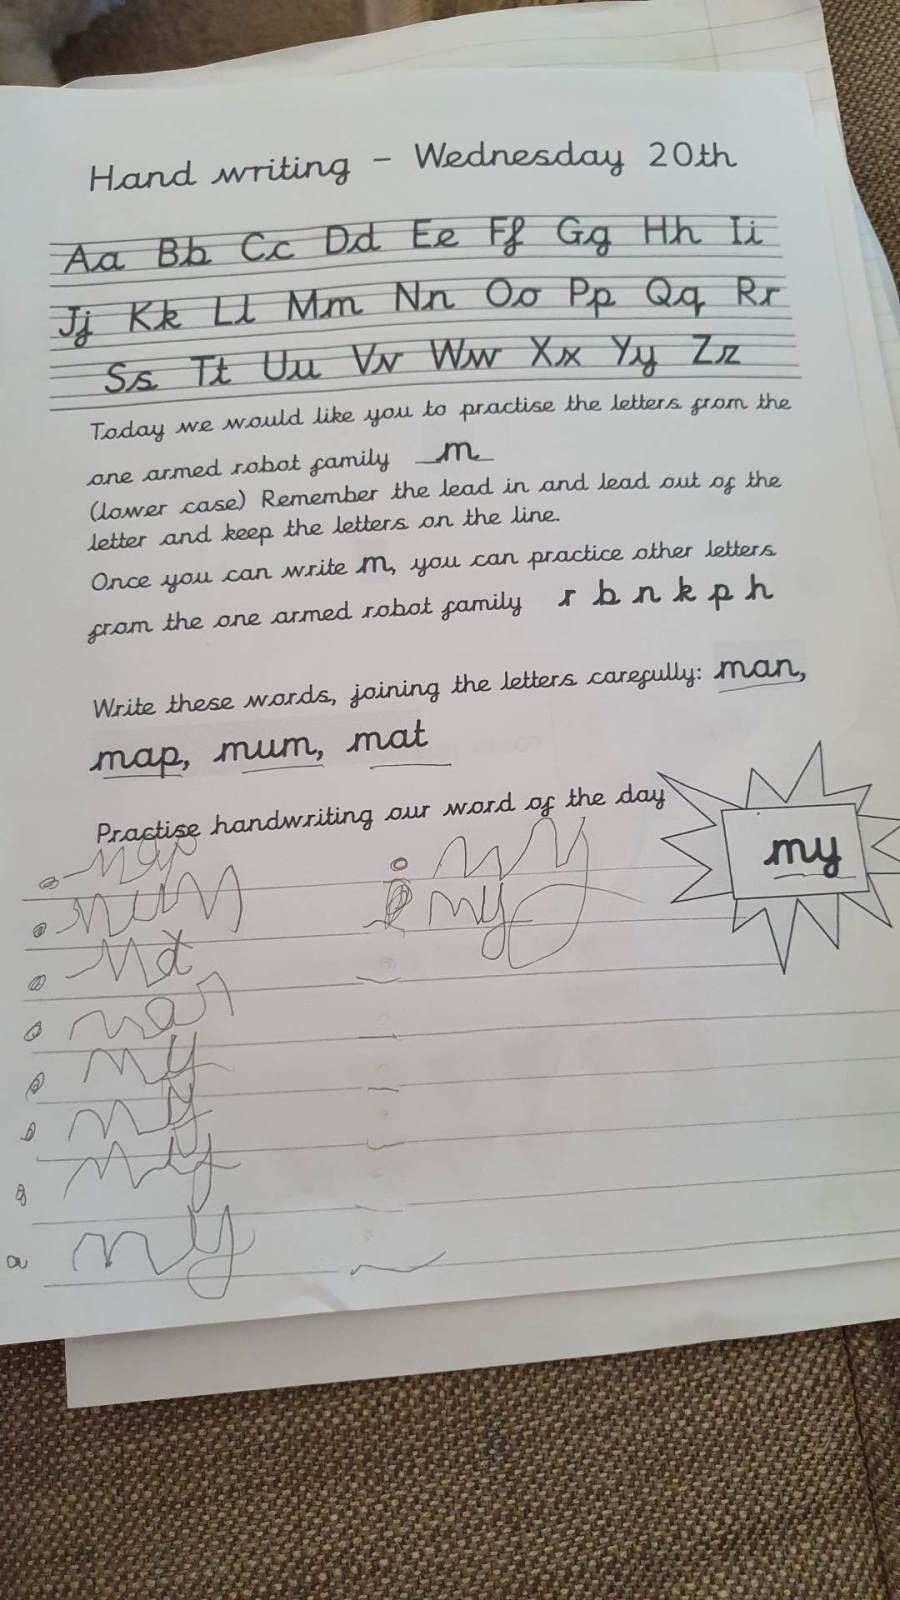 Hand writing - Wednesday 20th
Aa Bb Cc Dd Ee Ff Gg Hh Ii
Jj Kk Ll Mm Nn Oo Pp Qq Rr
Ss Tt Uu Vv Ww Xx Yy Zz
Today we would like you to practise the letters from the
one armed robot family m
(lower case) Remember the lead in and lead out of the
letter and keep the letters on the line.
Once you can write m, you can practice other letters
from the one armed robot family r b n k p h
Write these words, joining the letters carefully: man,
map, mum, mat
Practise handwriting our word of the day
my
map
mum
mat
man
my
my
my
my
my
my